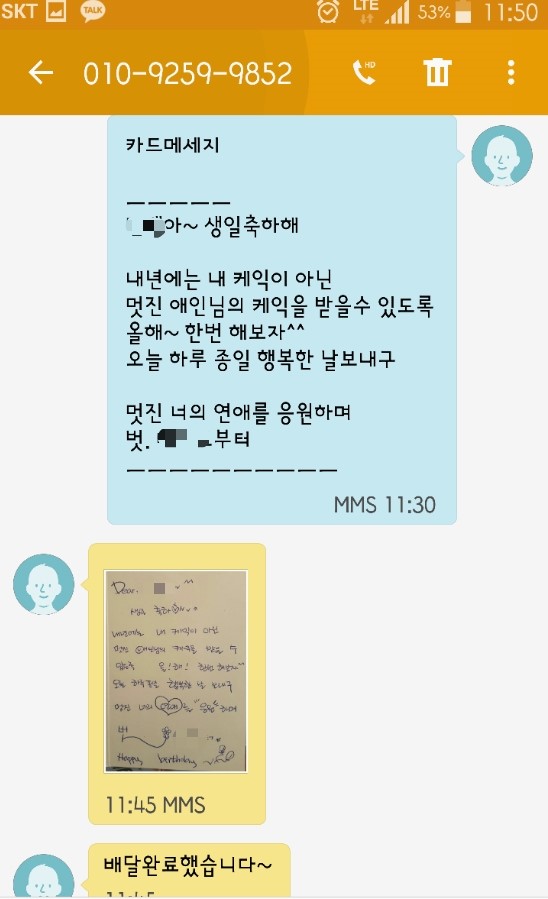 SKT TALK LTE 53% 11:50
010-9259-9852 HD
카드메세지
ㅡㅡㅡㅡㅡ
아~ 생일축하해
내년에는 내 케익이 아닌
멋진 애인님의 케익을 받을수 있도록
올해~ 한번 해보자^^
오늘 하루 종일 행복한 날보내구
멋진 너의 연애를 응원하며
벗. 부터
ㅡㅡㅡㅡㅡㅡㅡㅡㅡㅡ
MMS 11:30
Dear. ^^
생일 축하해
내년에는 내 케익이 아닌
멋진 애인님의 케익을 받을 수
있도록 올!해! 한번 해보자^^
오늘 하루종일 행복한 날 보내구
멋진 너의 연애를 "응원"하며
벗
Happy birthday
11:45 MMS
배달완료했습니다~
11:45